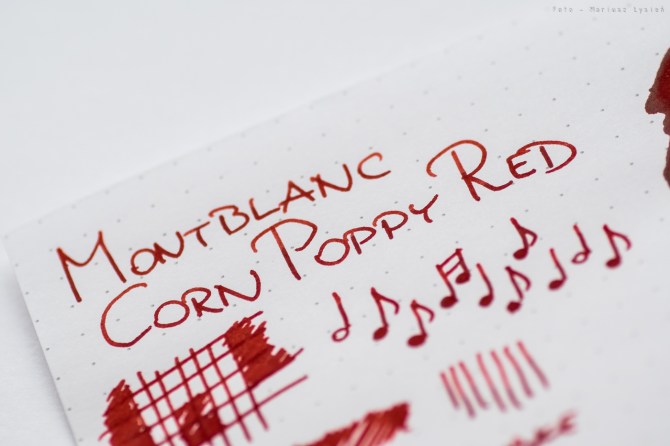 Foto - Mariusz Łysiak
MONTBLANC
CORN POPPY RED